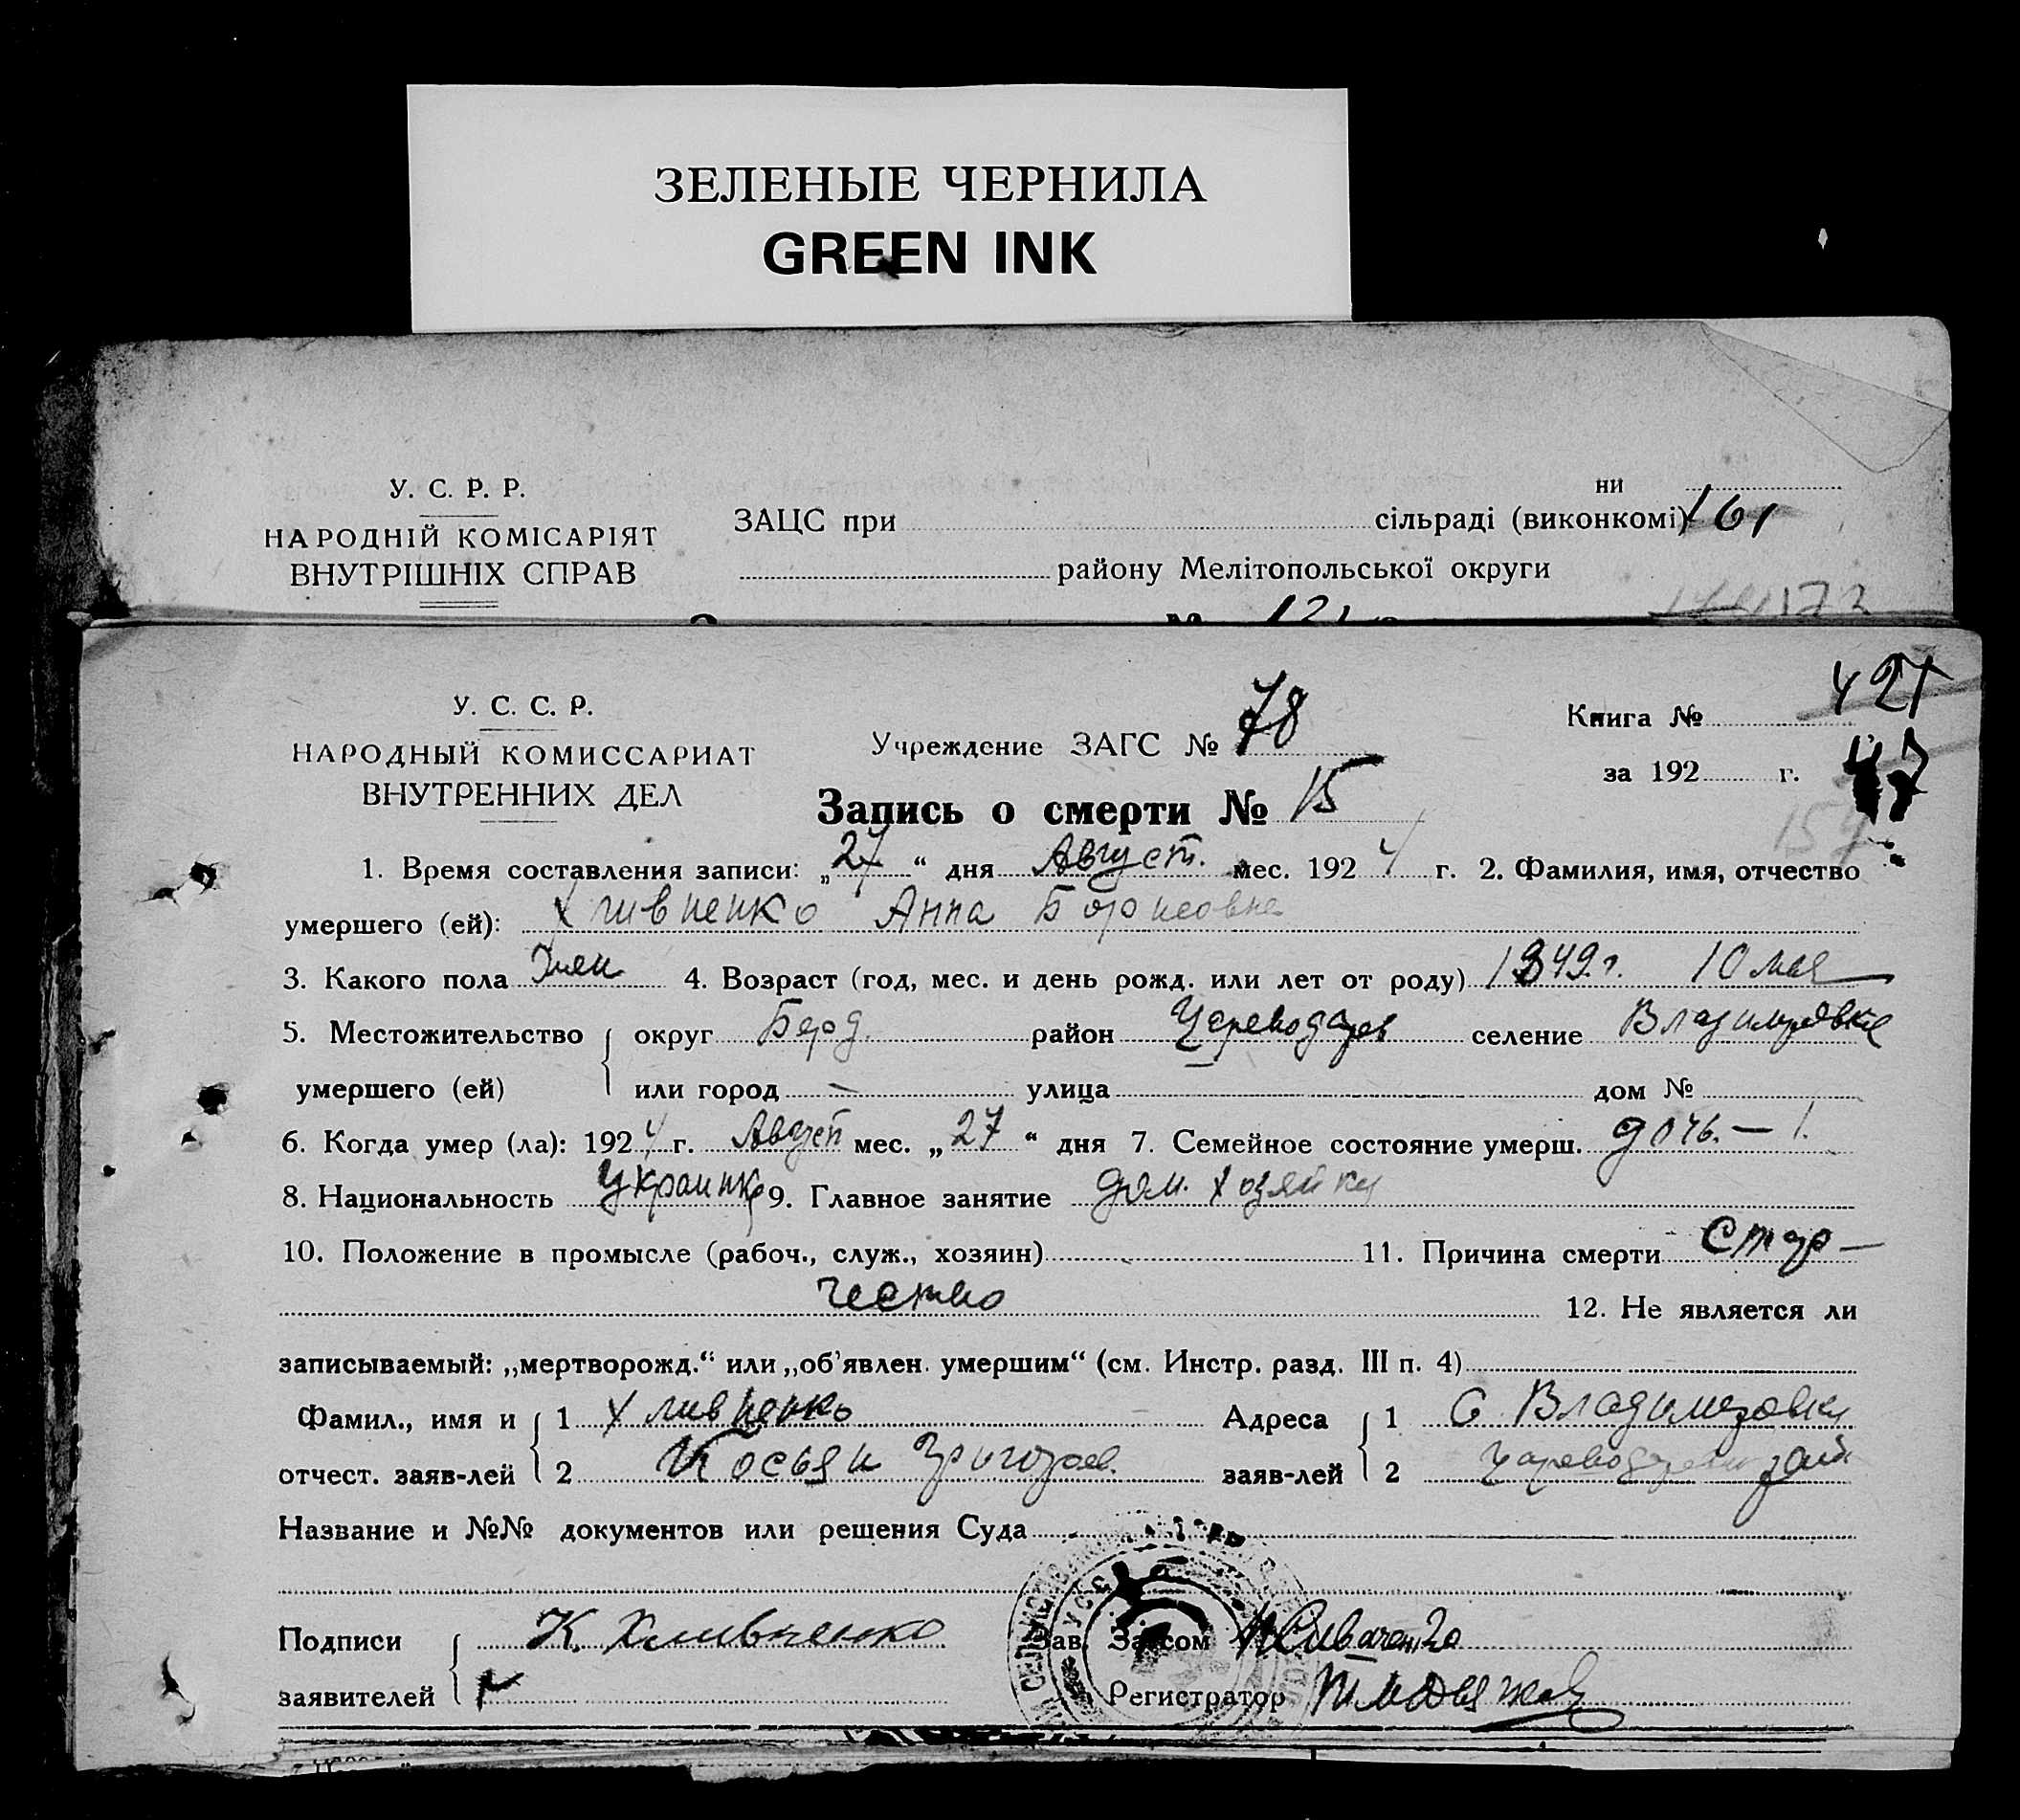 ЗЕЛЕНЫЕ ЧЕРНИЛА
GREEN INK
У. С. Р. Р.
НАРОДНІЙ КОМІСАРІЯТ
ВНУТРІШНІХ СПРАВ
ни
ЗАЦС при сільраді (виконкомі) 161
району Мелітопольської округи
173
У. С. С. Р.
НАРОДНЫЙ КОМИССАРИАТ
ВНУТРЕННИХ ДЕЛ
Учреждение ЗАГС № 78
Книга № 427
за 192 г. 47
Запись о смерти № 15
1. Время составления записи: „27“ дня Август. мес. 1924 г. 2. Фамилия, имя, отчество
умершего (ей): Хливненко Анна Борисовна
3. Какого пола Жен 4. Возраст (год, мес. и день рожд. или лет от роду) 1849 г. 10 мая
5. Местожительство умершего (ей) округ Берд. район Цареводаров селение Владимировка
или город — улица дом №
6. Когда умер (ла): 1924 г. Август мес. „27“ дня 7. Семейное состояние умерш. дочь. — 1.
8. Национальность Украинка 9. Главное занятие дом. хозяйка
10. Положение в промысле (рабоч., служ., хозяин) 11. Причина смерти Стар-
чество
12. Не является ли
записываемый: „мертворожд.“ или „об’явлен. умершим“ (см. Инстр. разд. III п. 4)
Фамил., имя и отчест. заяв-лей 1 Хливненко Адреса заяв-лей 1 С Владимировка
2 Косьян Григорев. 2 рай.
Название и №№ документов или решения Суда
Подписи заявителей К. Хливненко
Зав. Загсом
Регистратор